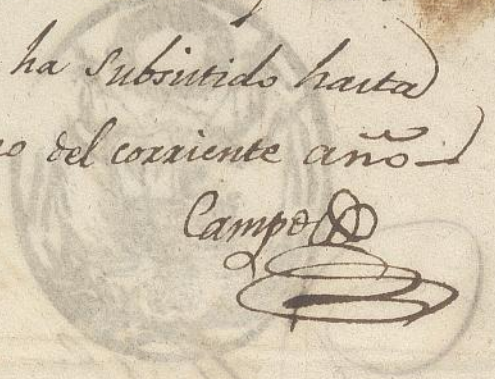 ha subsistido hasta
o del corriente año
Campo